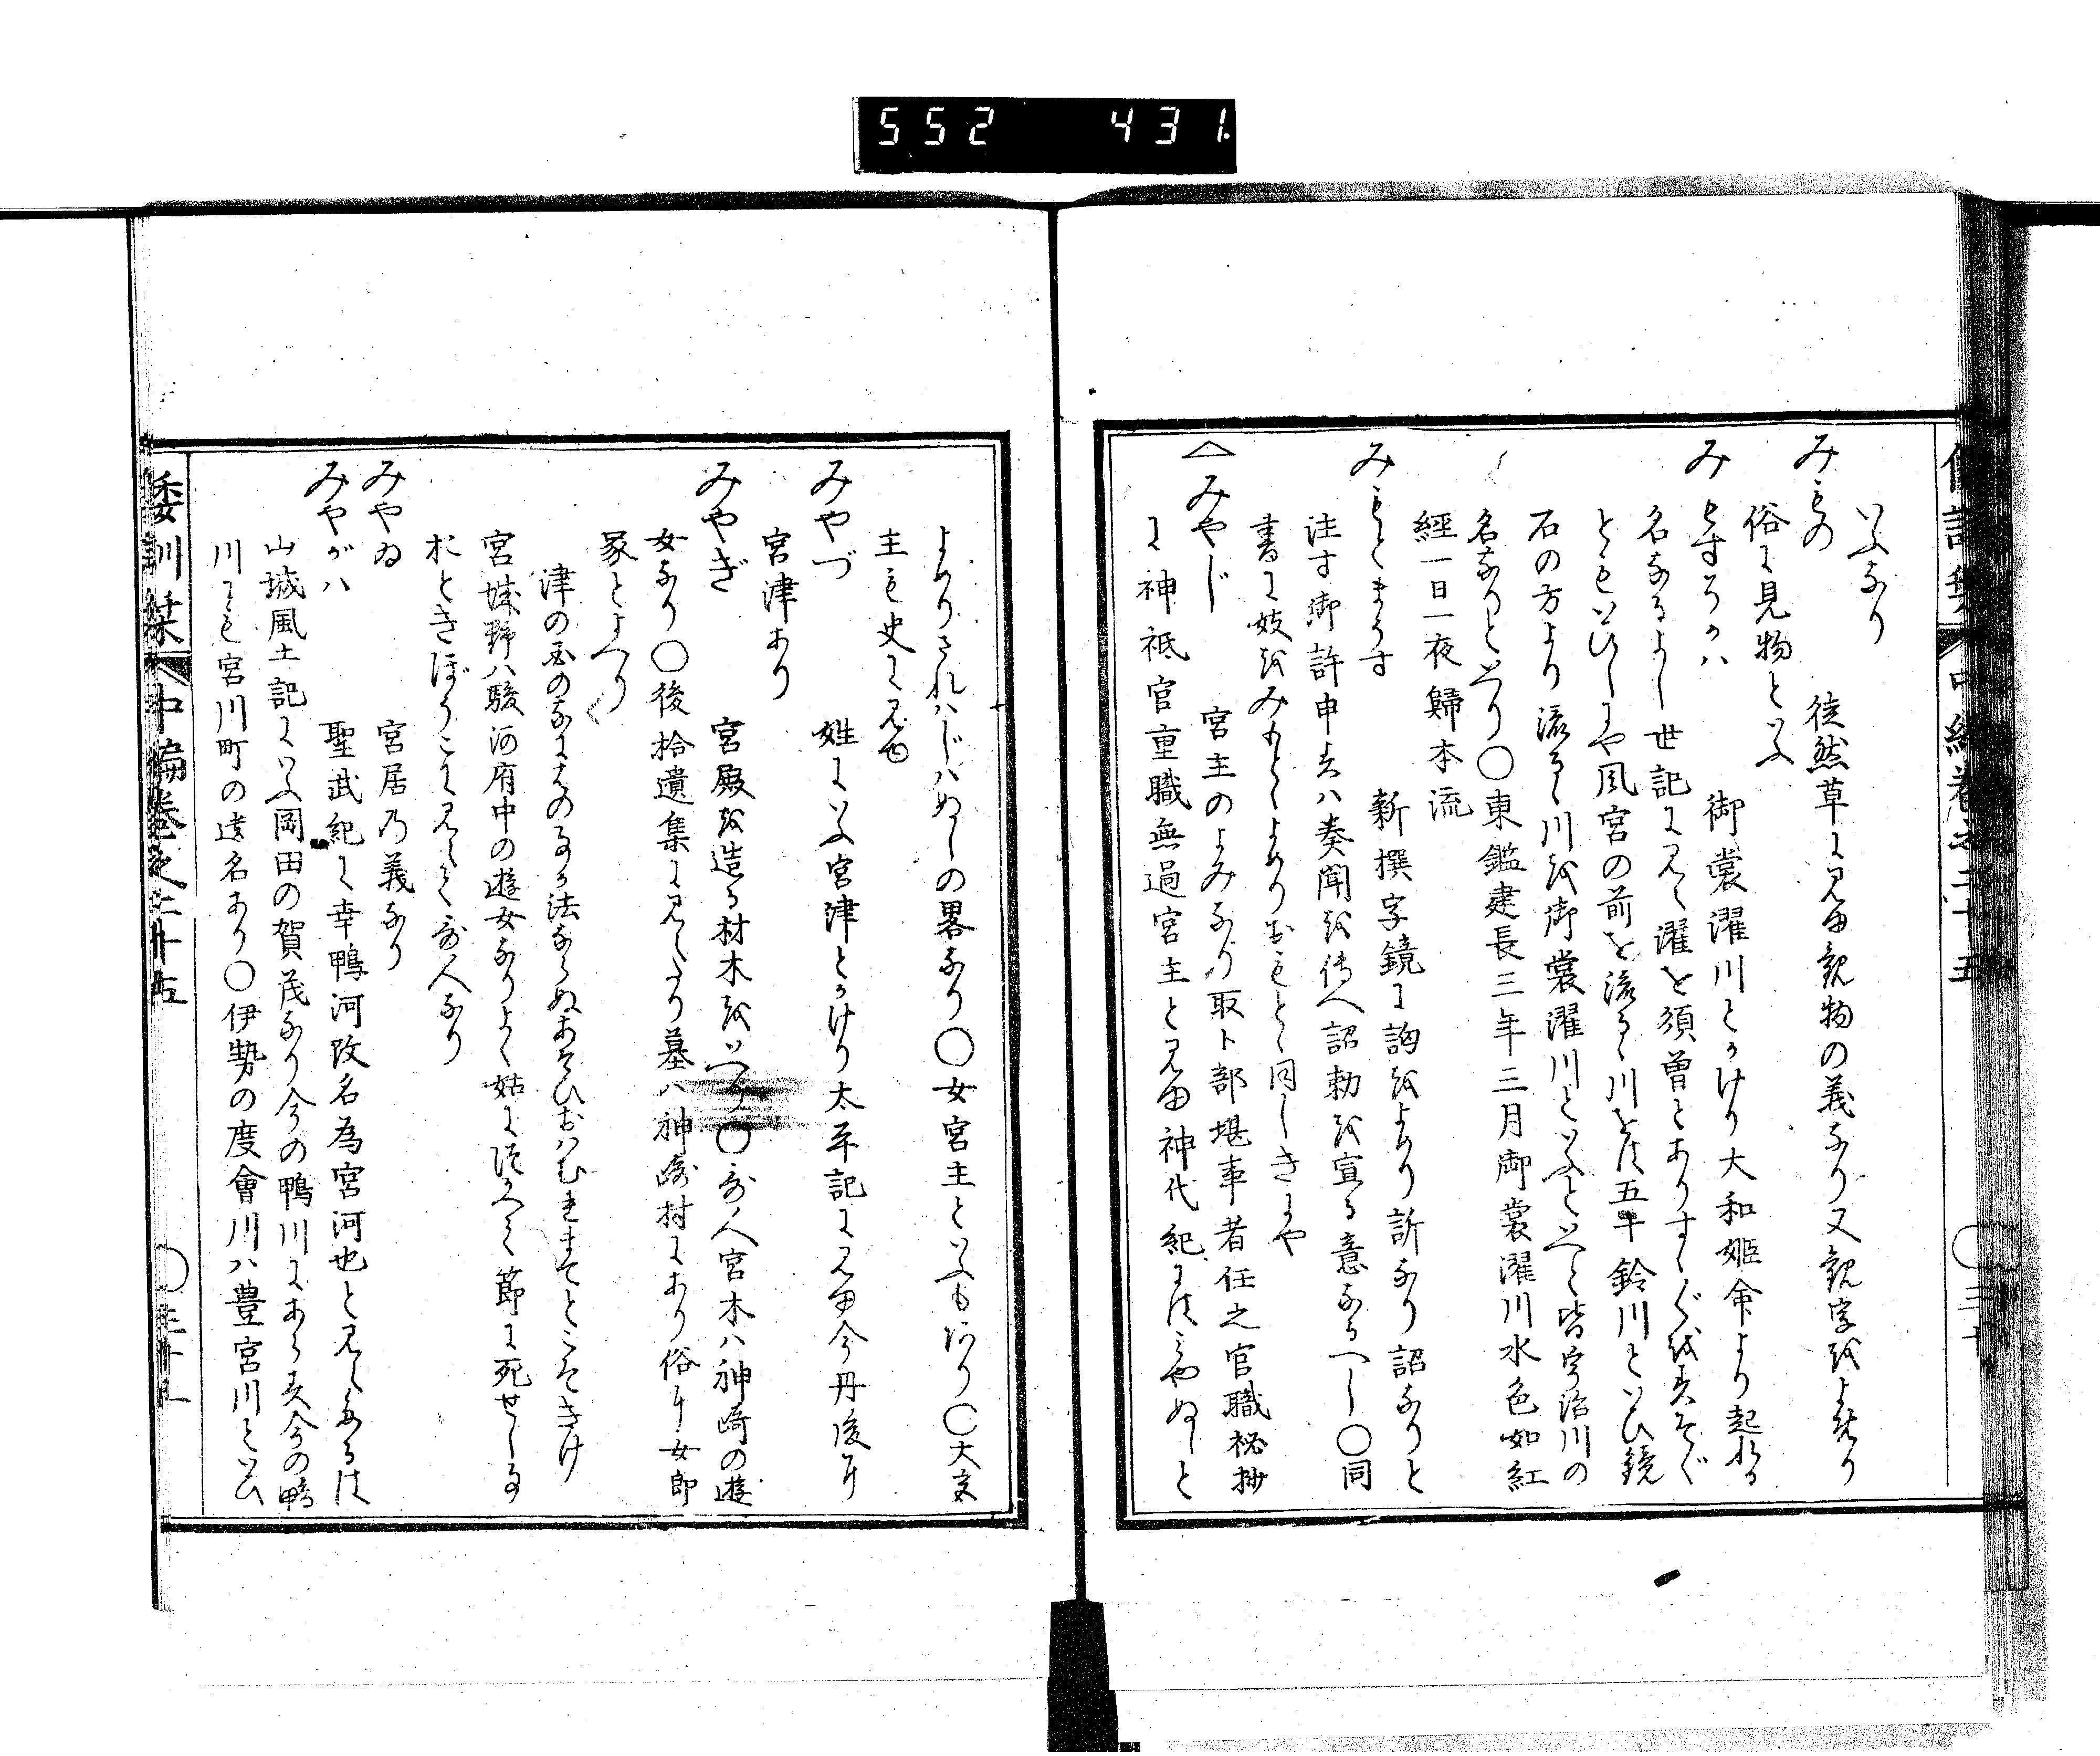 552 431
いふなり
みもの 徒然草に見ゆ観物の義なり又観字をよめり
俗に見物といふ
みもすそがハ 御裳濯川とかけり大和姫命より起れる
名なるよし世記に見ゆ濯を須曽とありすゝぐ
ともいひしにや風宮の前を流るゝ川をは五十鈴川といひ鏡
石の方より流るゝ川を御裳濯川といふといへと皆宇治川の
名なりといへり〇東鑑建長三年三月御裳濯川水色如紅
經一日一夜歸本流
新撰字鏡に訽をよめり訴なり詔なりと
注す御許申夫ハ奏聞を傳へ詔勅を宣る意なるへし〇同
書に妓をみもとゝよめりおもとゝ同しきにや
△みやじ 宮主のよみなり取卜部堪事者任之官職祕抄
に神祇官重職無過宮主と見ゆ神代紀にはみやぬしと
よめりされハじハぬしの畧なり〇女宮主といふもあり〇大宮
主も史に見ゆ
みやづ 姓にいふ宮津とかけり太平記に見ゆ今丹後に
宮津あり
みやぎ 宮殿を造る材木をいへり〇哥人宮木ハ神崎の遊
女なり〇後拾遺集に見えたり墓ハ神崎村にあり俗に女郎
冢とよへり
津の国のなにはの事か法ならぬあそひたはむれまてとこそきけ
宮城野ハ駿河府中の遊女なりよく姑に仕へて節に死せし事
おときぼうこに見えて哥人なり
みやゐ 宮居乃義なり
みやがハ 聖武紀に幸鴨河改名為宮河也と見えたるは
山城風土記にいふ岡田の賀茂なり今の鴨川にあらす今の鴨
川にも宮川町の遺名あり〇伊勢の度會川ハ豊宮川といひ
倭訓栞 中編巻之二十五